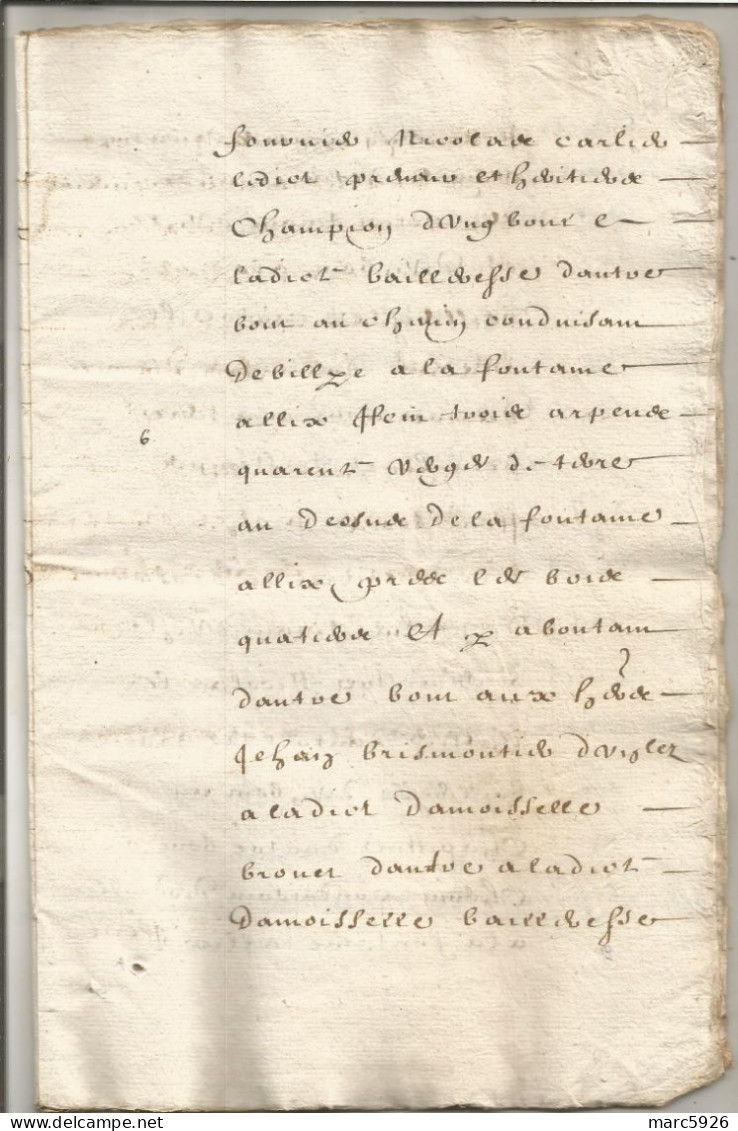 Nicolas Carlier
ledict preneur et heritiers
Champion d'ung bout a
ladict bailleresse d'autre
bout au chemin conduisant
de a la fontaine
allix Item trois arpens
6
quarent verges de terre
au dessus de la fontaine
allix pres les bois
quatiers et p aboutant
d'autre bout aux hers
Jehan Brismontier d'ung lez
a ladict damoisselle
brouet d'autre a ladict
damoisselle bailleresse
marc5926